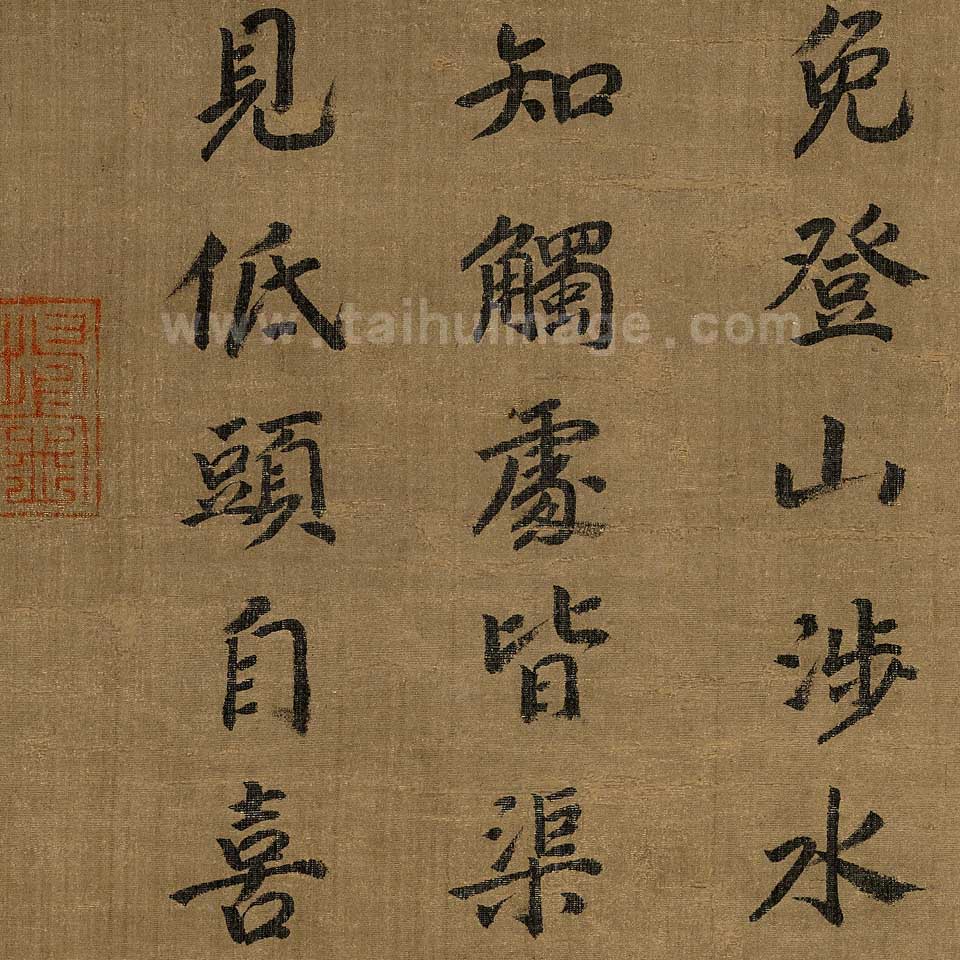 免登山涉水
知觸處皆渠
見低頭自喜
www.taihuimage.com